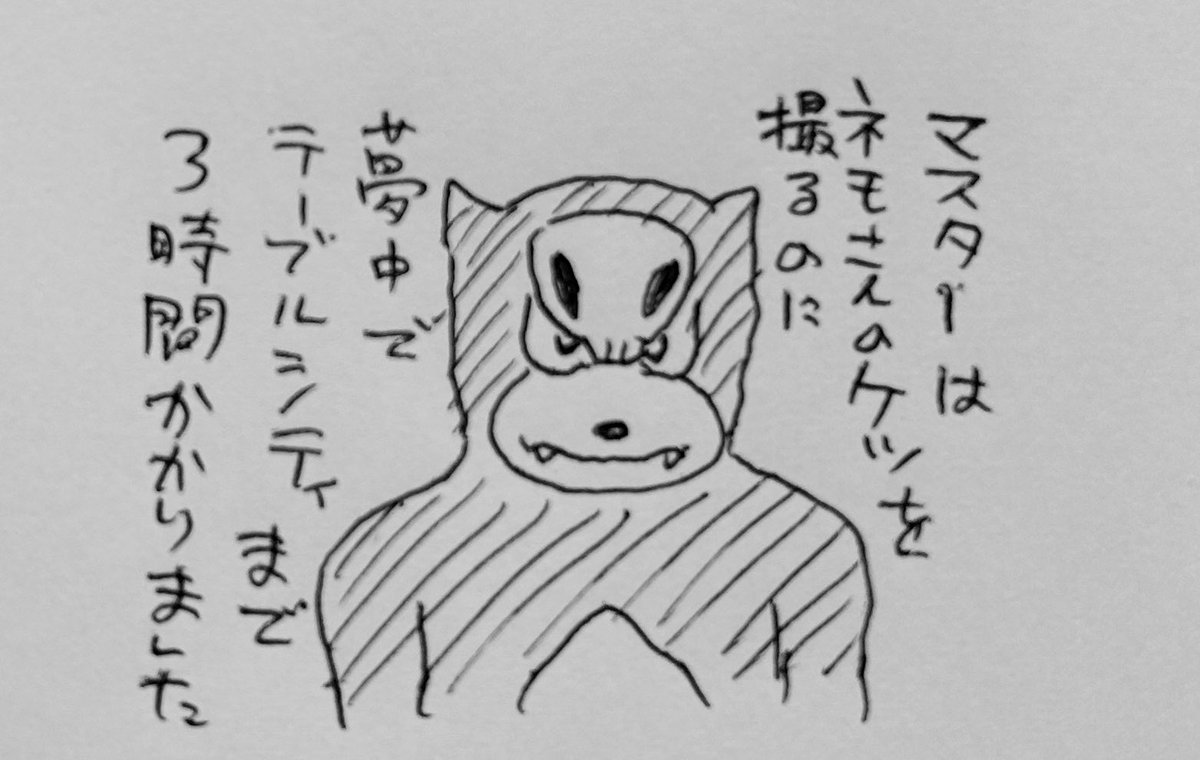 マスターは
ネモさんのケツを
撮るのに
夢中で
テーブルシティ
まで
3時間かかりました